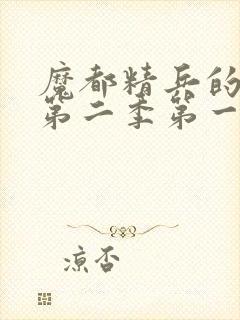 魔都精兵的
第二季第一
凉否